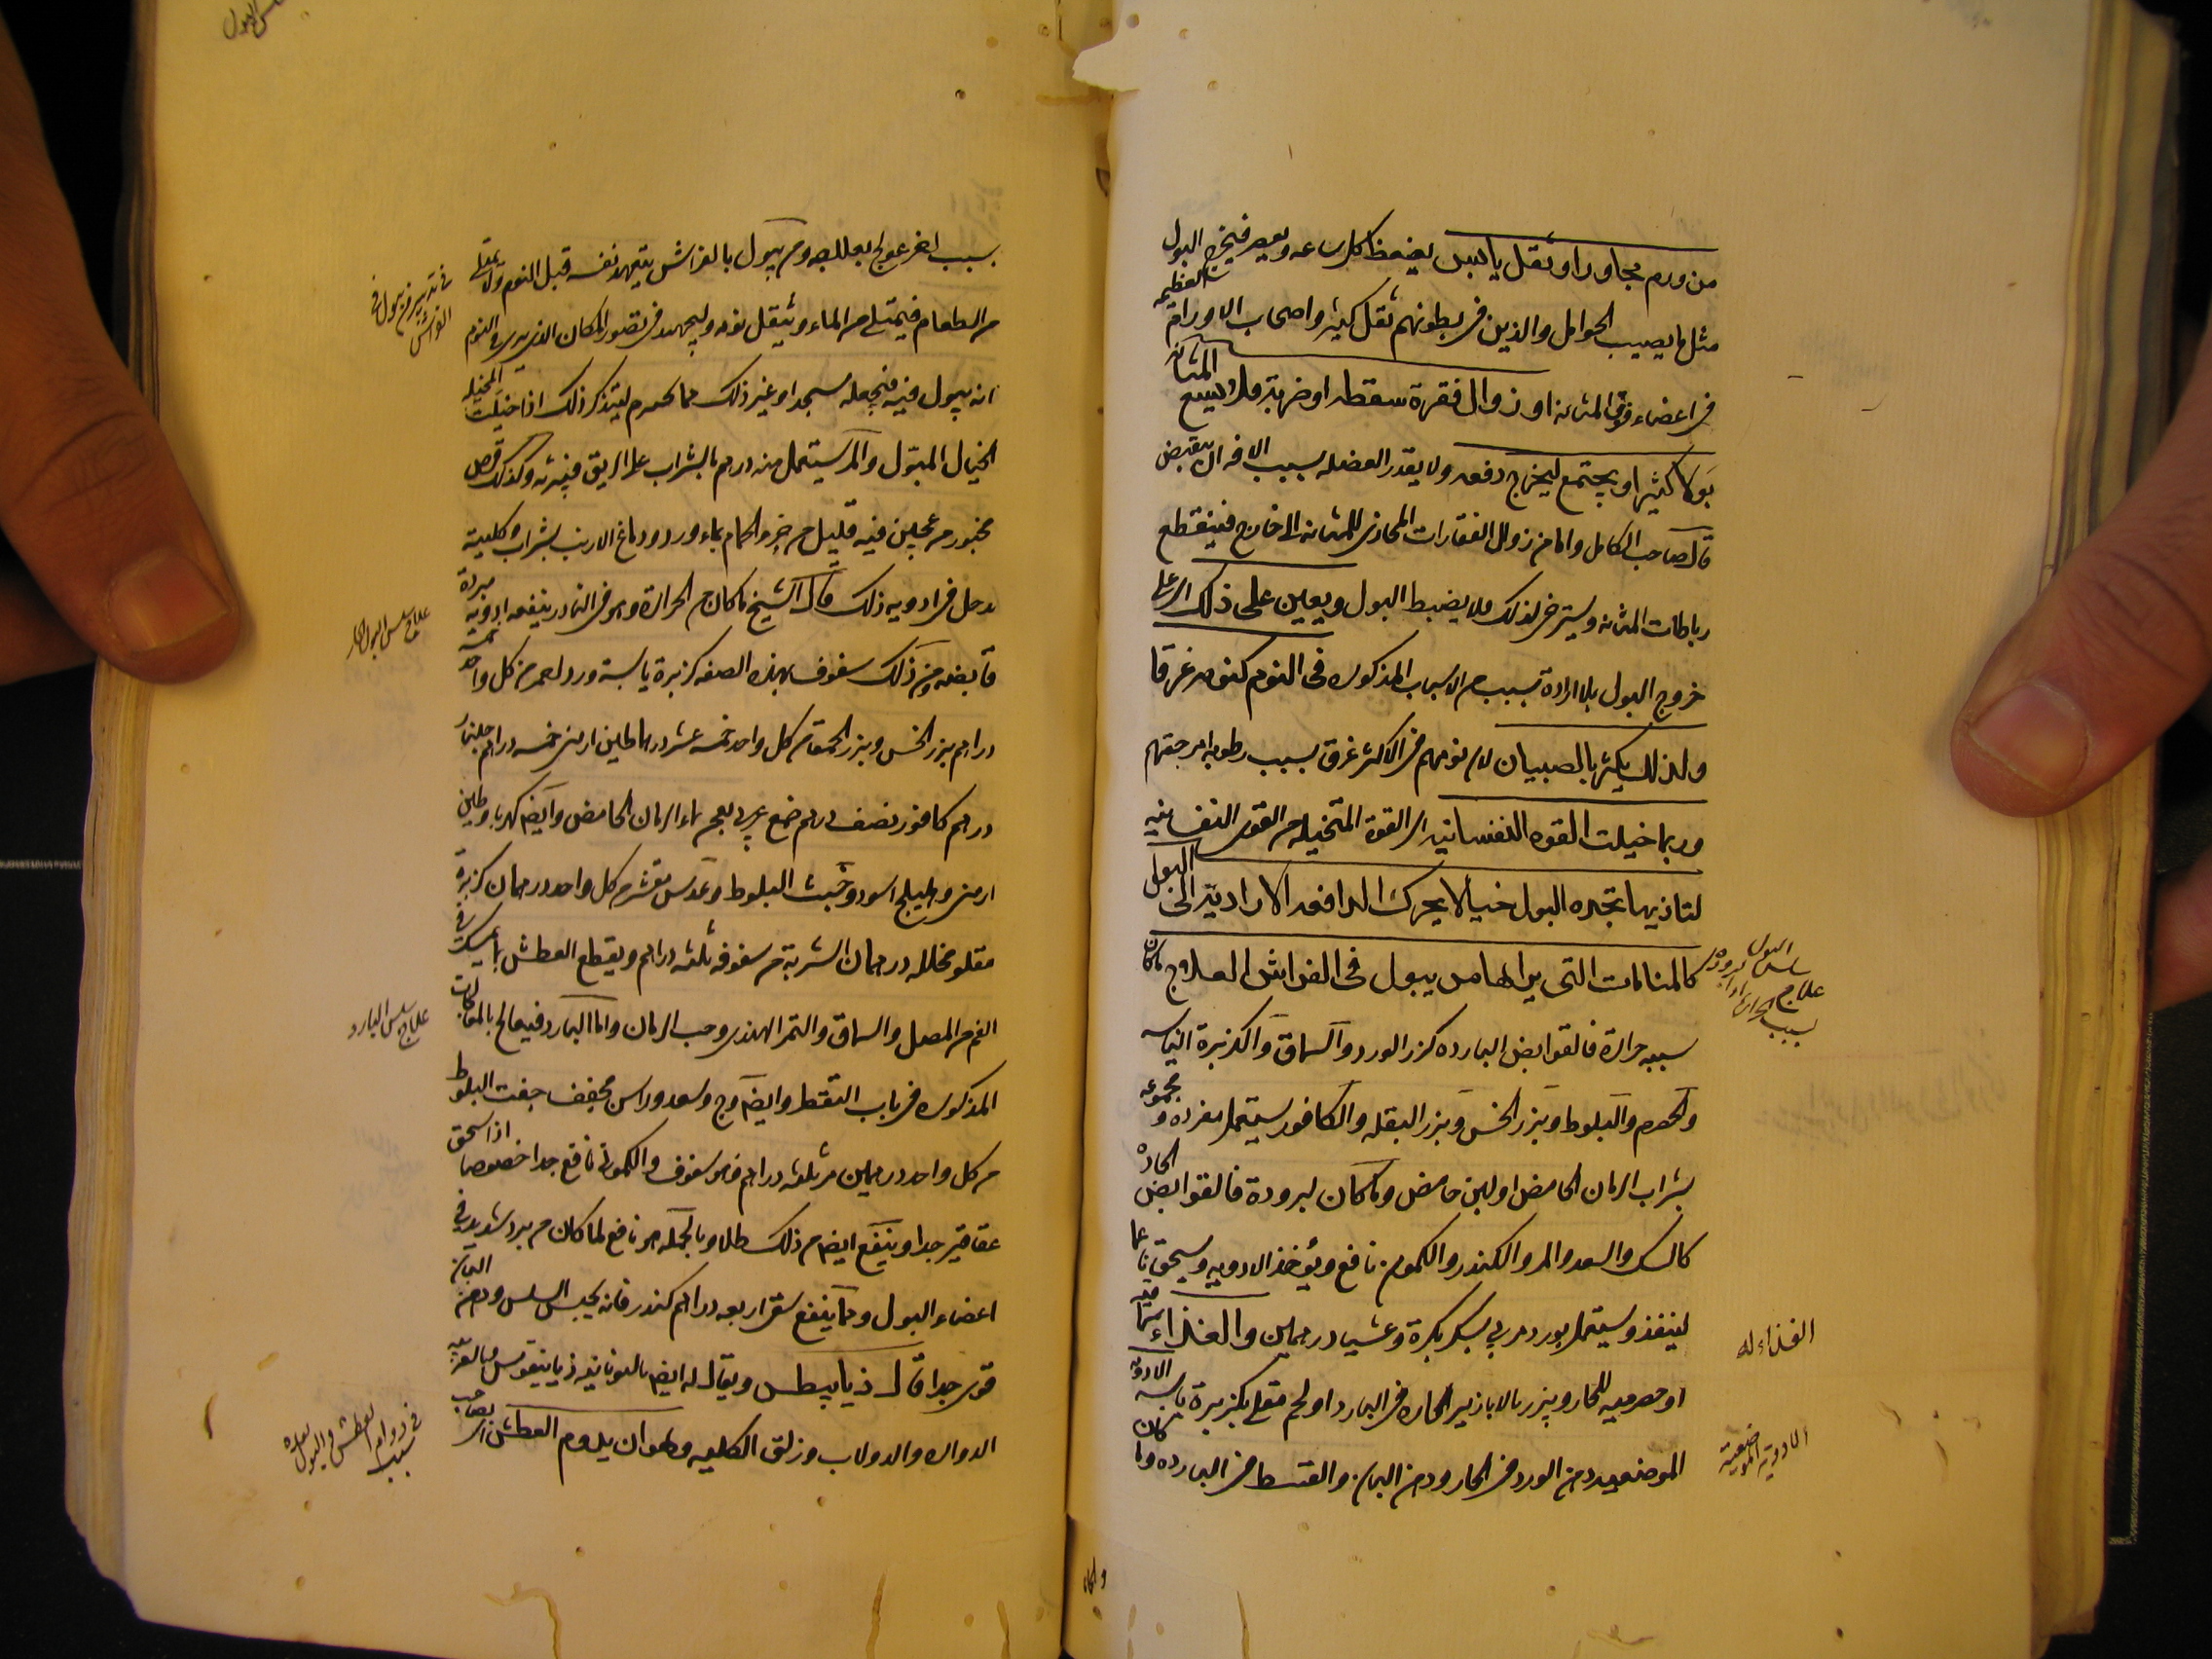 من ورم مجاور او ثقل يابس يضغط كل ساعه ويعصر فيخرج البول
مثل ما يصيب الحوامل والذين فى بطونهم ثقل كثير واصحاب الاورام العظيمه
فى اعضاء فوق المثانه او زوال فقرة سقطه او ضربة فلا يسع المثانة
بولا كثيرا ويجتمع ليخرج دفعه ولا يقدر العضله بسبب الافه ان يقبض
قال صاحب الكامل واما من زوال الفقارات المحاذى للمثانه الى خارج فينقطع
رباطات المثانه ويسترخى لذلك فلا يضبط البول ويعين على ذلك اى على
خروج البول بلا ارادة بسبب من الاسباب المذكوره فى النوم كنوم غرقا
ولذلك يكثر بالصبيان لان نومهم فى الاكثر غرق بسبب رطوبه امزجتهم
وربما خيلت القوه النفسانيه اى القوة المتخيله من القوى النفسانيه
لتاذيها بحده البول خيالا يحرك الدافعه الاراديه الى البول
كالمنامات التى يراها من يبول فى الفراش العلاج ما كان
سببه حرارة فالقوابض البارده كزر الورد والسماق والكزبرة اليابسه
والحصرم والبلوط وبزر الخس وبزر البقله والكافور يستعمل مفرده ومجموعه
بشراب الرمان الحامض او لبن حامض وما كان لبرودة فالقوابض الحاره
كالسك والسعد والمر والكندر والكمون نافع ويؤخذ الادويه ويسحق ناعما
لينفذ ويستعمل بورد مربى بسكر بكرة وعشيا درهمين والغذاء سماقيه
او حصرميه للحار ويزر بالابازير الحاره فى البارد او لحم مقلى بكزبرة يابسه الادويه
الموضعيه دهن الورد فى الحار ودهن البان والقسط فى البارده وما كان
علاج سلس البول
بسبب الحرارة او البرودة
الغذاء له
الادوية الموضعية
سبب اخر عولج بعلاجه ومن يبول بالفراش يتعهد نفسه قبل النوم ولا يمتلى
من الطعام فيمتلى من الماء ويثقل نومه وليجهد فى تصور المكان الذى يرى فى النوم
انه يبول فيه فيجعله مسجدا او غير ذلك مما يحترم ليتذكر ذلك اذا خيلت المخيله
الخيال المبول والمر يستعمل منه درهم بالشراب على الريق فيبرئه وكذلك قرص
مخبوز من عجين فيه قليل من خرء الحمام بماء ورد ودماغ الارنب بشراب وكلية
يدخل فى ادويه ذلك قال الشيخ ما كان من الحرارة وهو فى النادر ينفعه ادوية مبردة
قابضه ومن ذلك سفوف بهذه الصفه كزبرة يابسة ورد احمر من كل واحد خمسة
دراهم بزر الخس وبزر الحمقا من كل واحد خمسه عشر درهما طين ارمنى خمسه دراهم جلنار
درهم كافور نصف درهم صمغ عربى يعجن بماء الرمان الحامض وايضا كهربا وطين
ارمنى وهليلج اسود وخبث البلوط وعدس مقشر من كل واحد درهمان كزبرة
مقلو مخلله درهمان الشربة من سفوفه ثلثه دراهم ويقطع العطش بامساك فى
الفم من المصل والسماق والتمر الهندى وحب الرمان واما البارد فيعالج بالمعالجات
المذكوره فى باب التقطير وايضا وج وسعد وراسن مجفف جفت البلوط
من كل واحد درهمين مر ثلثه دراهم وهو سفوف والكمونى نافع جدا خصوصا اذا سحق
عقاقيره جدا وينفع ايضا من ذلك طلاء وبالجمله هو نافع لما كان من برد شديد فى
اعضاء البول ومما ينفع سقى اربعه دراهم كندر فانه يحبس السلس ودهن البان
قوى جدا قال ذيابيطس ويقال له ايضا باليونانيه ذيابيقوس وبالعربيه
الدواره والدولاب وزلق الكليه وهو ان يدوم العطش اى بصاحب
فى تدبير من يبول فى
الفراش
علاج سلس البول الحار
علاج سلس البارد
فى دوام العطش والبول
سلس البول